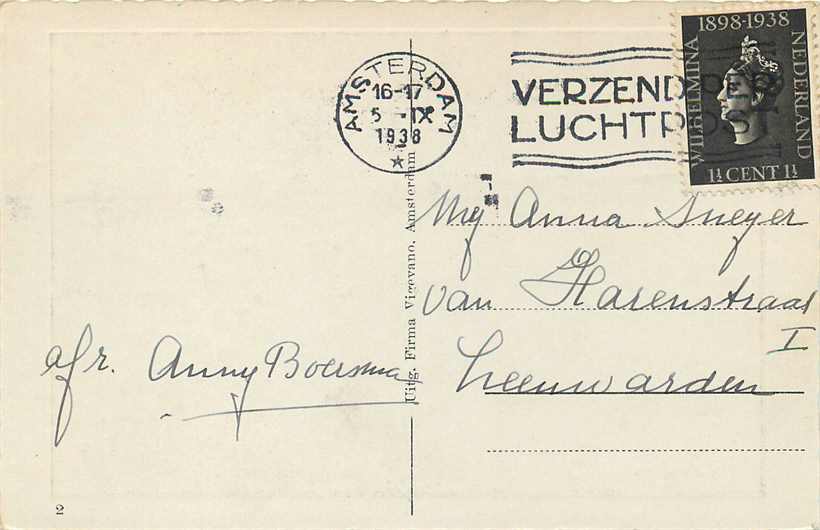 AMSTERDAM
16-17
5-IX
1938
VERZEND PER
LUCHTPOST
1898-1938
WILHELMINA
NEDERLAND
1½ CENT 1½
Mej Anna Sneyer
van Harenstraat
I
Leeuwarden
afz. Anny Boersma
Uitg. Firma Vigevano, Amsterdam
2